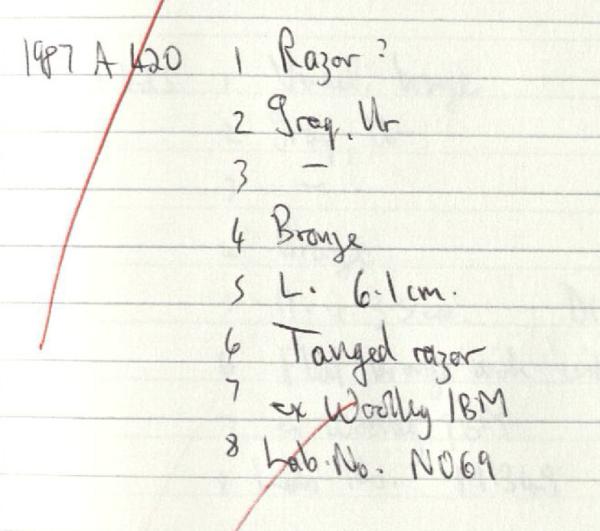 1987 A 420 1 Razor?
2 Iraq, Ur
3 –
4 Bronze
5 L. 6.1 cm.
6 Tanged razor
7 ex Woolley / BM
8 Lab. No. N069